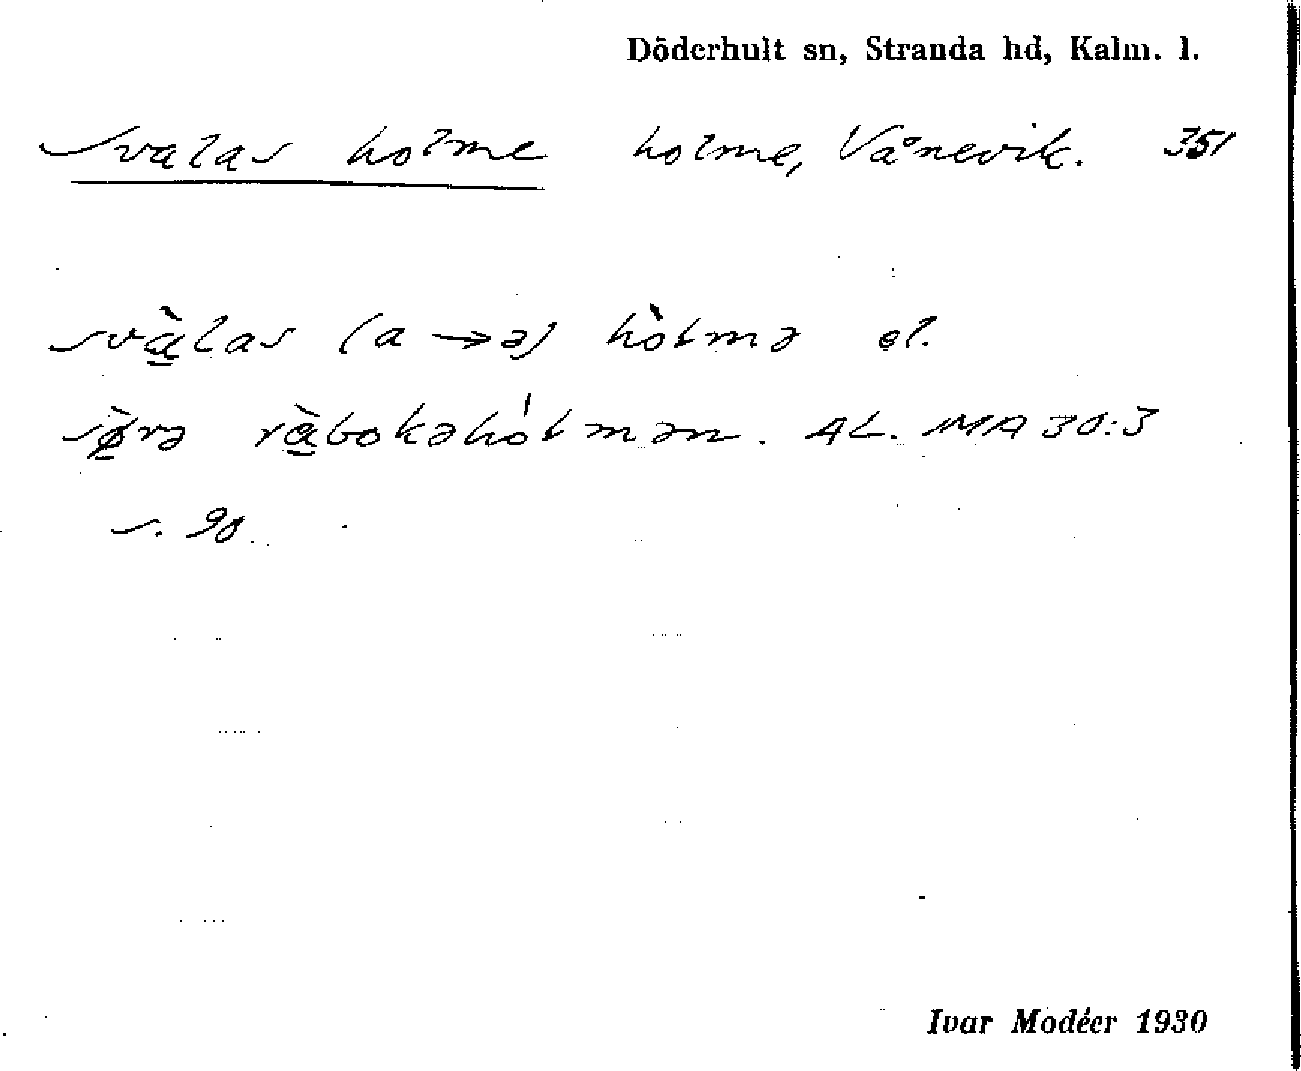 Döderhult sn, Stranda hd, Kalm. l.
Svalas holme holme, Vånevik. 351
svàlas (a → ə) hòlmə el.
sø̀rə ràbokəhólmən. AL. MA 30:3
s. 90.
Ivar Modéer 1930